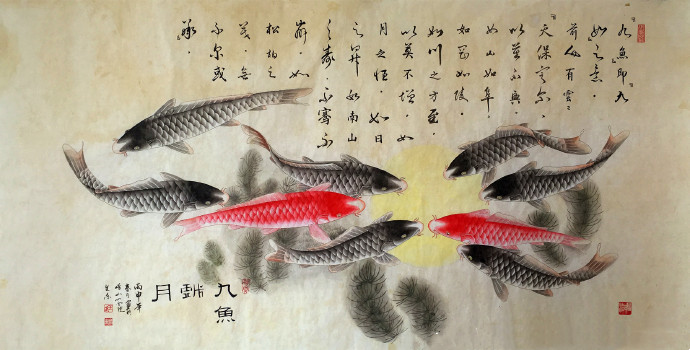 「九魚」即「九
如」之意。
前人有雲：
「天保定尔，
以莫不興。
如山如阜，
如岡如陵，
如川之方至，
以莫不增。如
月之恒，如日
之昇，如南山
之壽，不騫不
崩。如
松柏之
茂，無
不尔或
承。
九魚
戲
月
丙申年